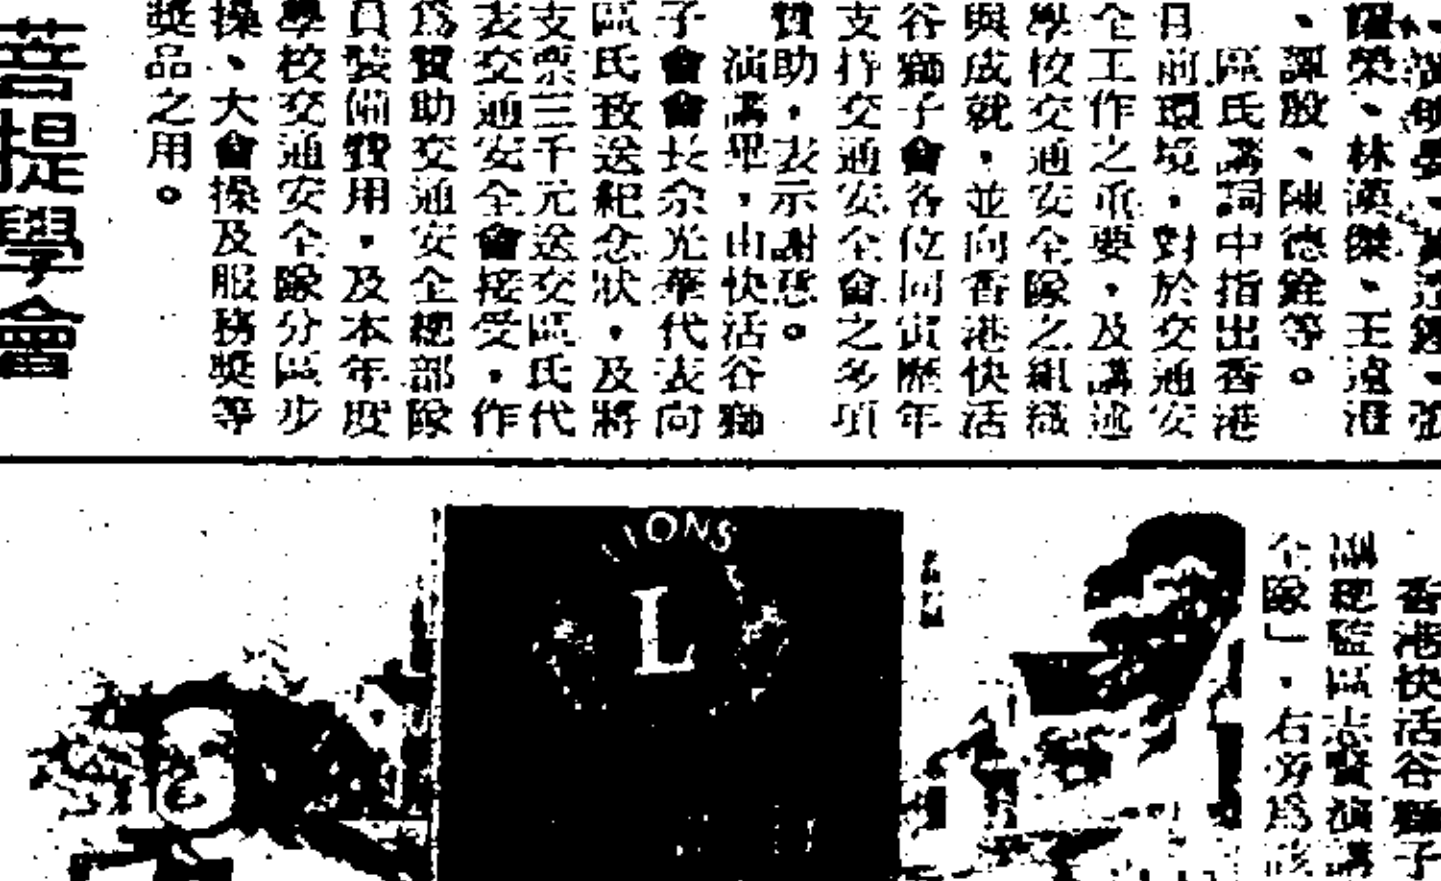 耀榮、林漢傑、王遠澄
、譚殷、陳德銓等。
區氏講詞中指出香港
目前環境,對於交通安
全工作之重要,及講述
學校交通安全隊之組織
與成就,並向香港快活
谷獅子會各位同寅歷年
支持交通安全會之多項
贊助,表示謝意。
演講畢,由快活谷獅
子會會長余光華代表向
區氏致送紀念狀,及將
支票三千元送交區氏代
表交通安全會接受,作
為贊助交通安全總部隊
員裝備費用,及本年度
學校交通安全隊分區步
操、大會操及服務獎等
獎品之用。
菩提學會
LIONS
L
香港快活谷獅子
副總監區志賢演講
全隊」,右旁為